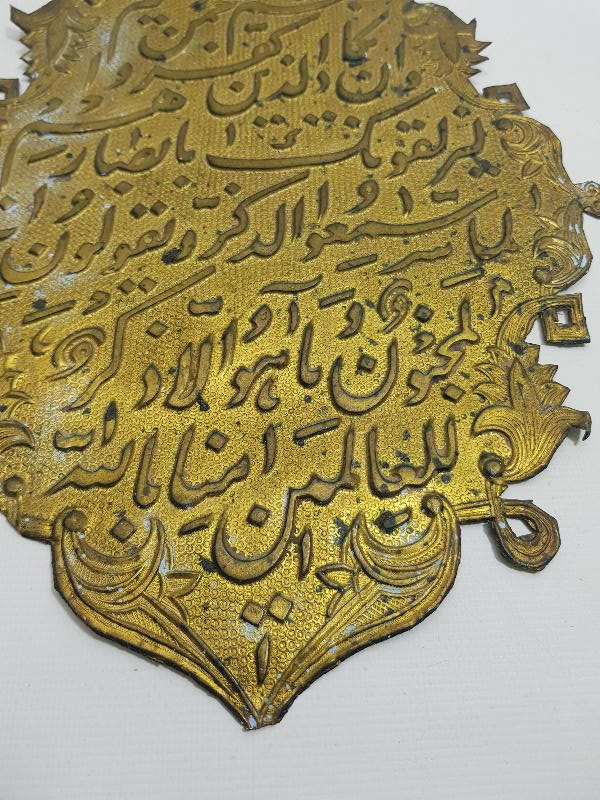 وَإِن يَكَادُ الَّذِينَ كَفَرُوا
لَيُزْلِقُونَكَ بِأَبْصَارِهِمْ
لَمَّا سَمِعُوا الذِّكْرَ وَيَقُولُونَ إِنَّهُ
لَمَجْنُونٌ وَمَا هُوَ إِلَّا ذِكْرٌ
لِلْعَالَمِينَ آمَنَّا بِاللَّهِ